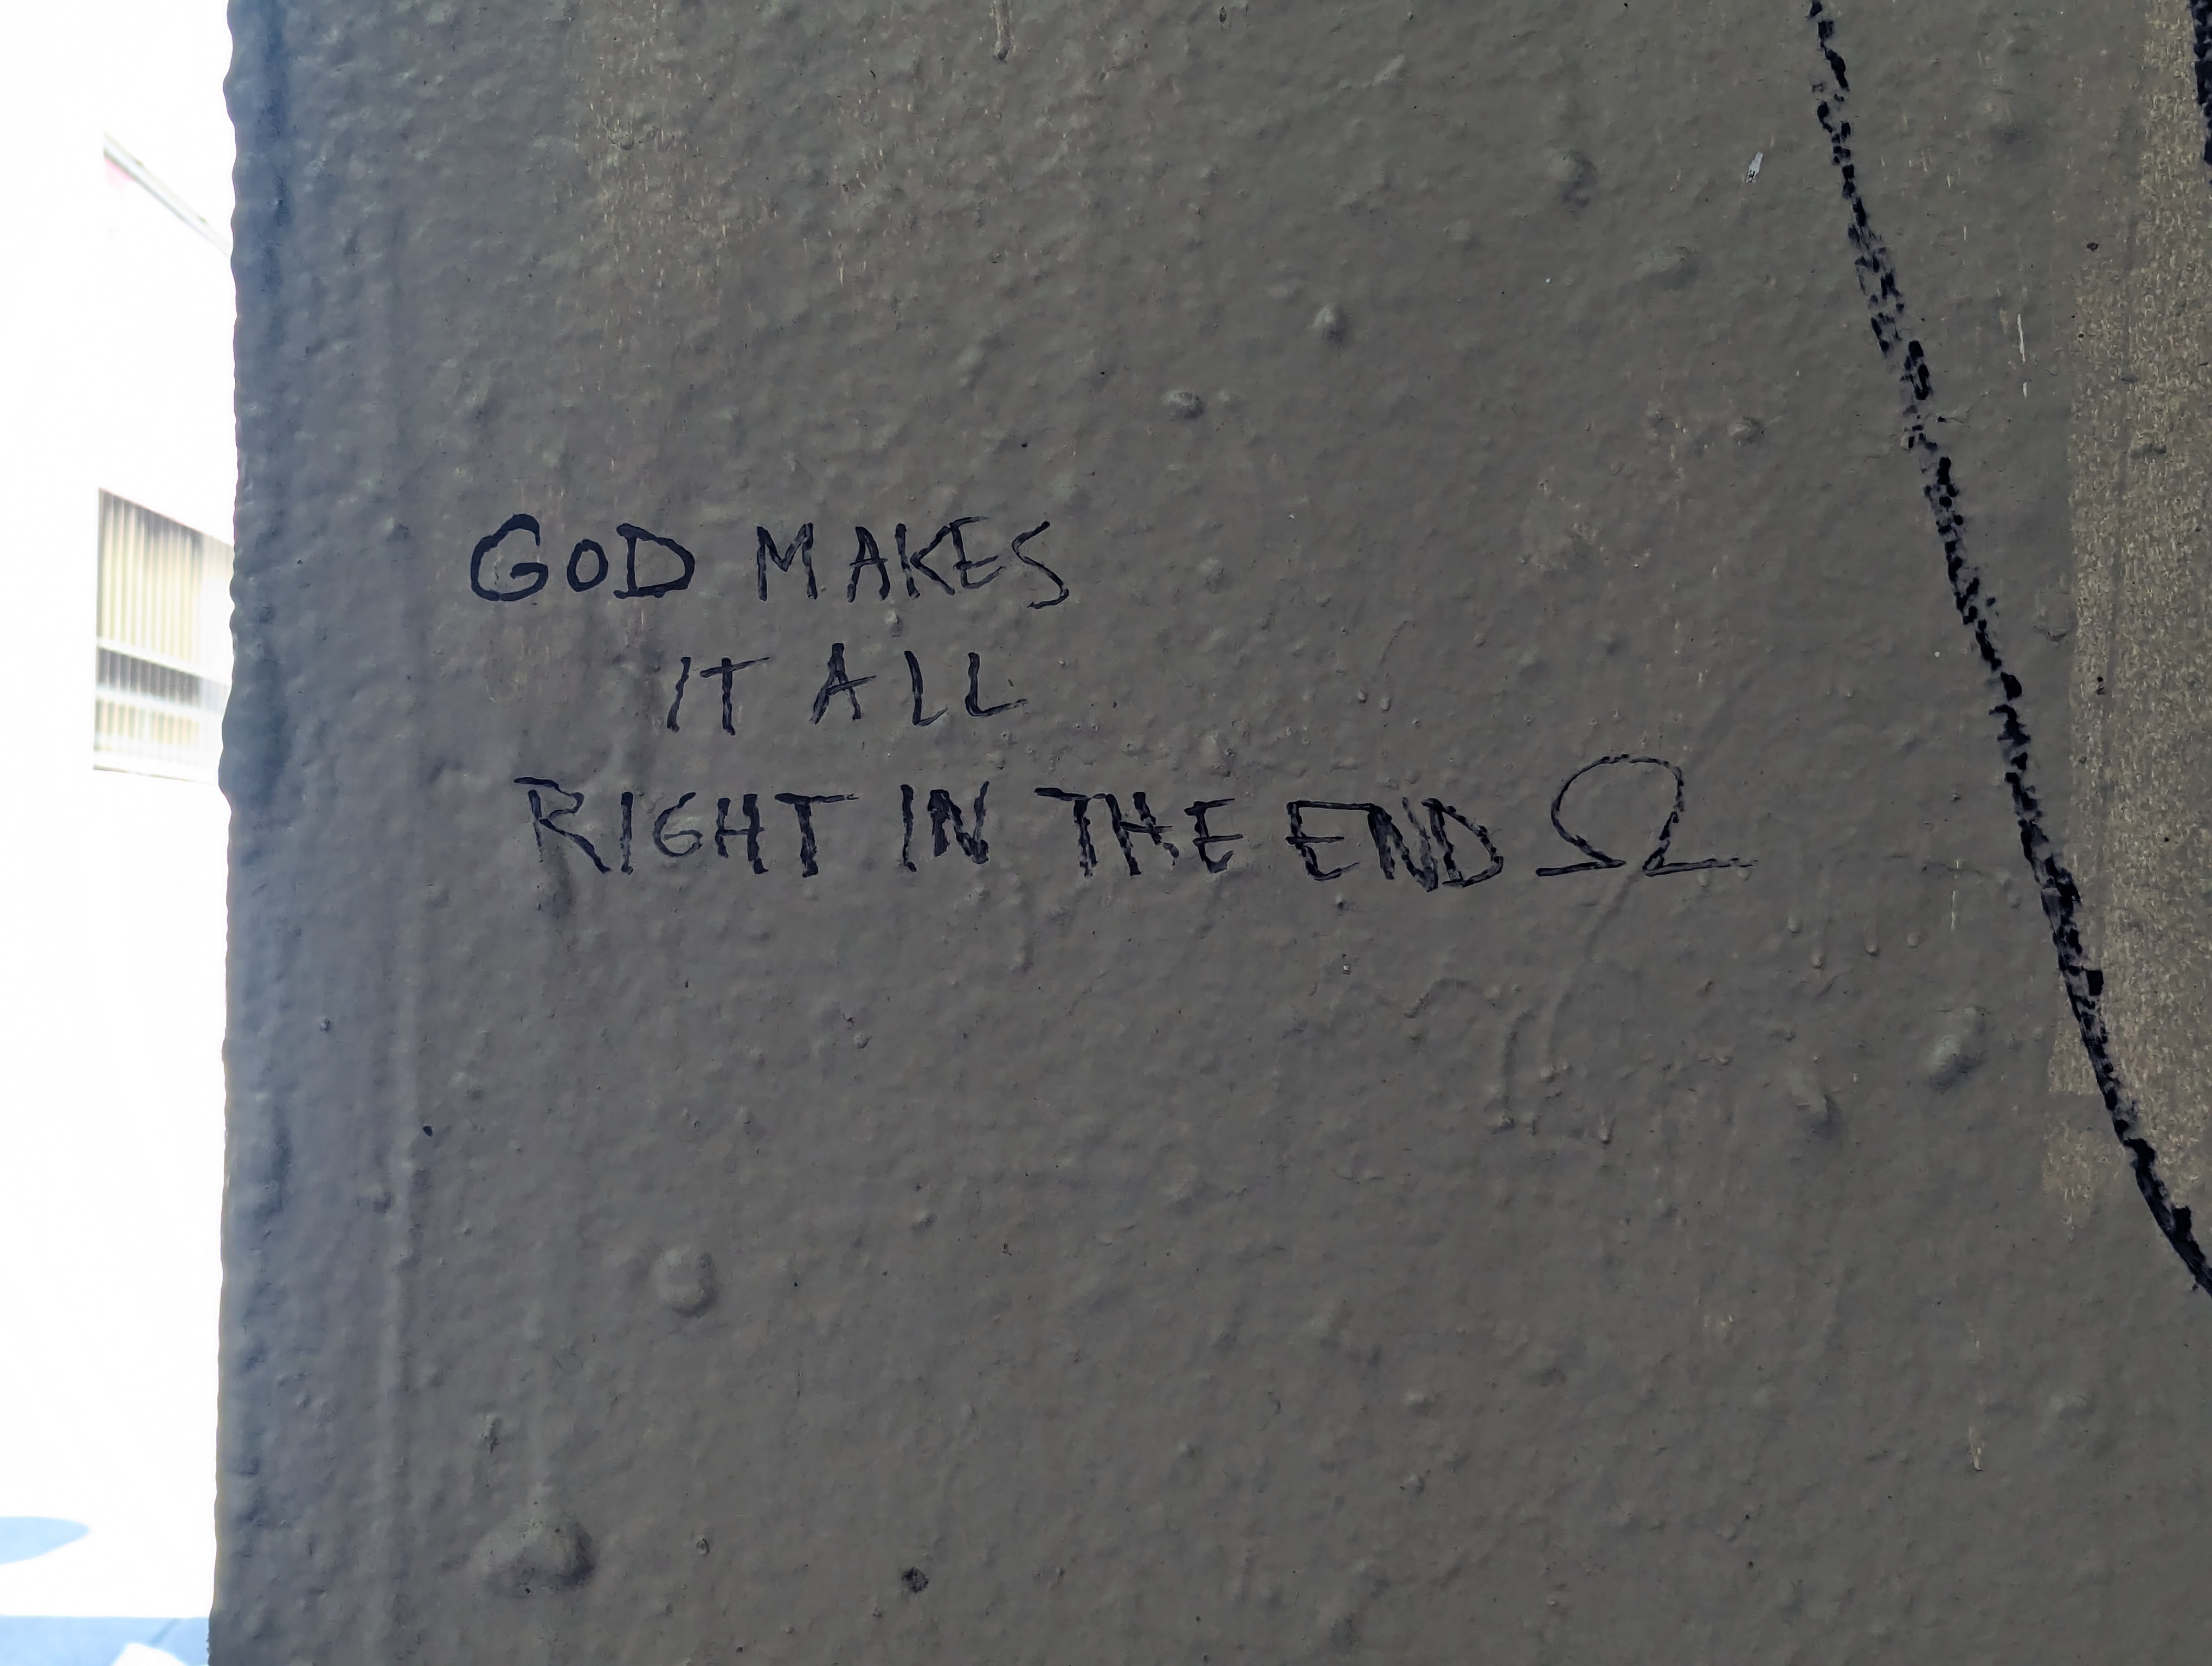 GOD MAKES
IT ALL
RIGHT IN THE END Ω